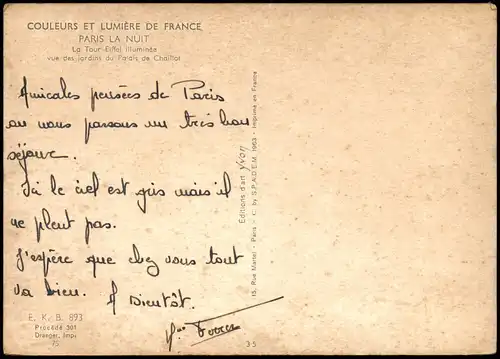 COULEURS ET LUMIÈRE DE FRANCE
PARIS LA NUIT
La Tour Eiffel illuminée
vue des jardins du Palais de Chaillot
Amicales pensées de Paris
ou nous passons un très bon
séjour.
Ici le ciel est gris mais il
ne pleut pas.
J'espère que chez vous tout
va bien. A bientôt.
E. K. B. 893
Procédé 301
Draeger, Imp.
75
Editions d'art yvon
15, Rue Martel - Paris - C. by S.P.A.D.E.M. 1963 - Imprimé en France
35